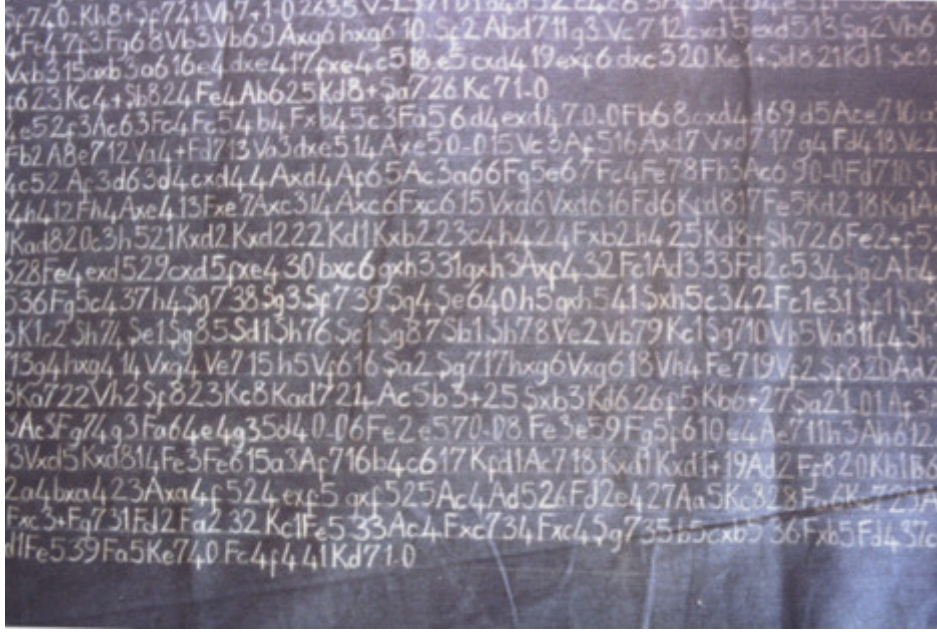 4Fe47f3Fg68Vb3Vb69Axg6hxg610-Sc2Abd711g3Vc712cxd5exd513Sg2Vb6
Vxb315axb3a616e4dxe417fxe4c518e5cxd419exf6dxc320Ke1+Sd821Kd1Sc8
f623Kc4+Sb824Fe4Ab625Kd8+Sa726Kc71-0
4e52f3Ac63Fc4Fc54b4Fxb45c3Fa56d4exd470-0Fb68cxd4d69d5Ace710a
Fb2A8e712Va4+Fd713Va3dxe514Axe50-015Vc3Af516Axd7Vxd717g4Fd418Vc2
4c52Af3d63d4cxd44Axd4Af65Ac3a66Fg5e67Fc4Fe78Fb3Ac690-0Fd710S
4h412Fh4Axe413Fxe7Axc314Axc6Fxc615Vxd6Vxd616Fd6Kcd817Fe5Kd218Kg1A
Kad820c3h521Kxd2Kxd222Kd1Kxb223c4h424Fxb2h425Kd8+Sh726Fe2+f5
328Fe4exd529cxd5fxe430bxc6gxh331gxh3Axf432Fc1Ad333Fd2c534Sg2Ab4
536Fg5c437h4Sg738Sg3Sf739Sg4Se640h5gxh541Sxh5c342Fc1e31Sf1Sg
3K1c2Sh74Se1Sg85Sd1Sh76Sc1Sg87Sb1Sh78Ve2Vb79Kc1Sg710Vb5Va811f4Sh
13g4hxg414Vxg4Ve715h5Vf616Sa2Sg717hxg6Vxg618Vh4Fe719Vf2Sf820Ad2
3Ka722Vh2Sf823Kc8Kad724Ac5b3+25Sxb3Kd626f5Kb6+27Sa21-01Af3
3Ac5Fg74g3Fa64e4g35d40-06Fe2e570-08Fe3e59Fg5f610e4Ae711h3Ah612
3Vxd5Kxd814Fe3Fe615a3Af716b4c617Kfd1Ac718Kxd1Kxd1+19Ad2Ff820Kb1B6
2a4bxa423Axa4f524exf5gxf525Ac4Ad526Fd2e427Aa5Kc828Fa4Kc729A
Fxc3+Fg731Fd2Fa232Kc1Fe533Ac4Fxc734Fxc4Sg735b5cxb536Fxb5Fd437c
d1Fe539Fa5Ke740Fc4f441Kd71-0